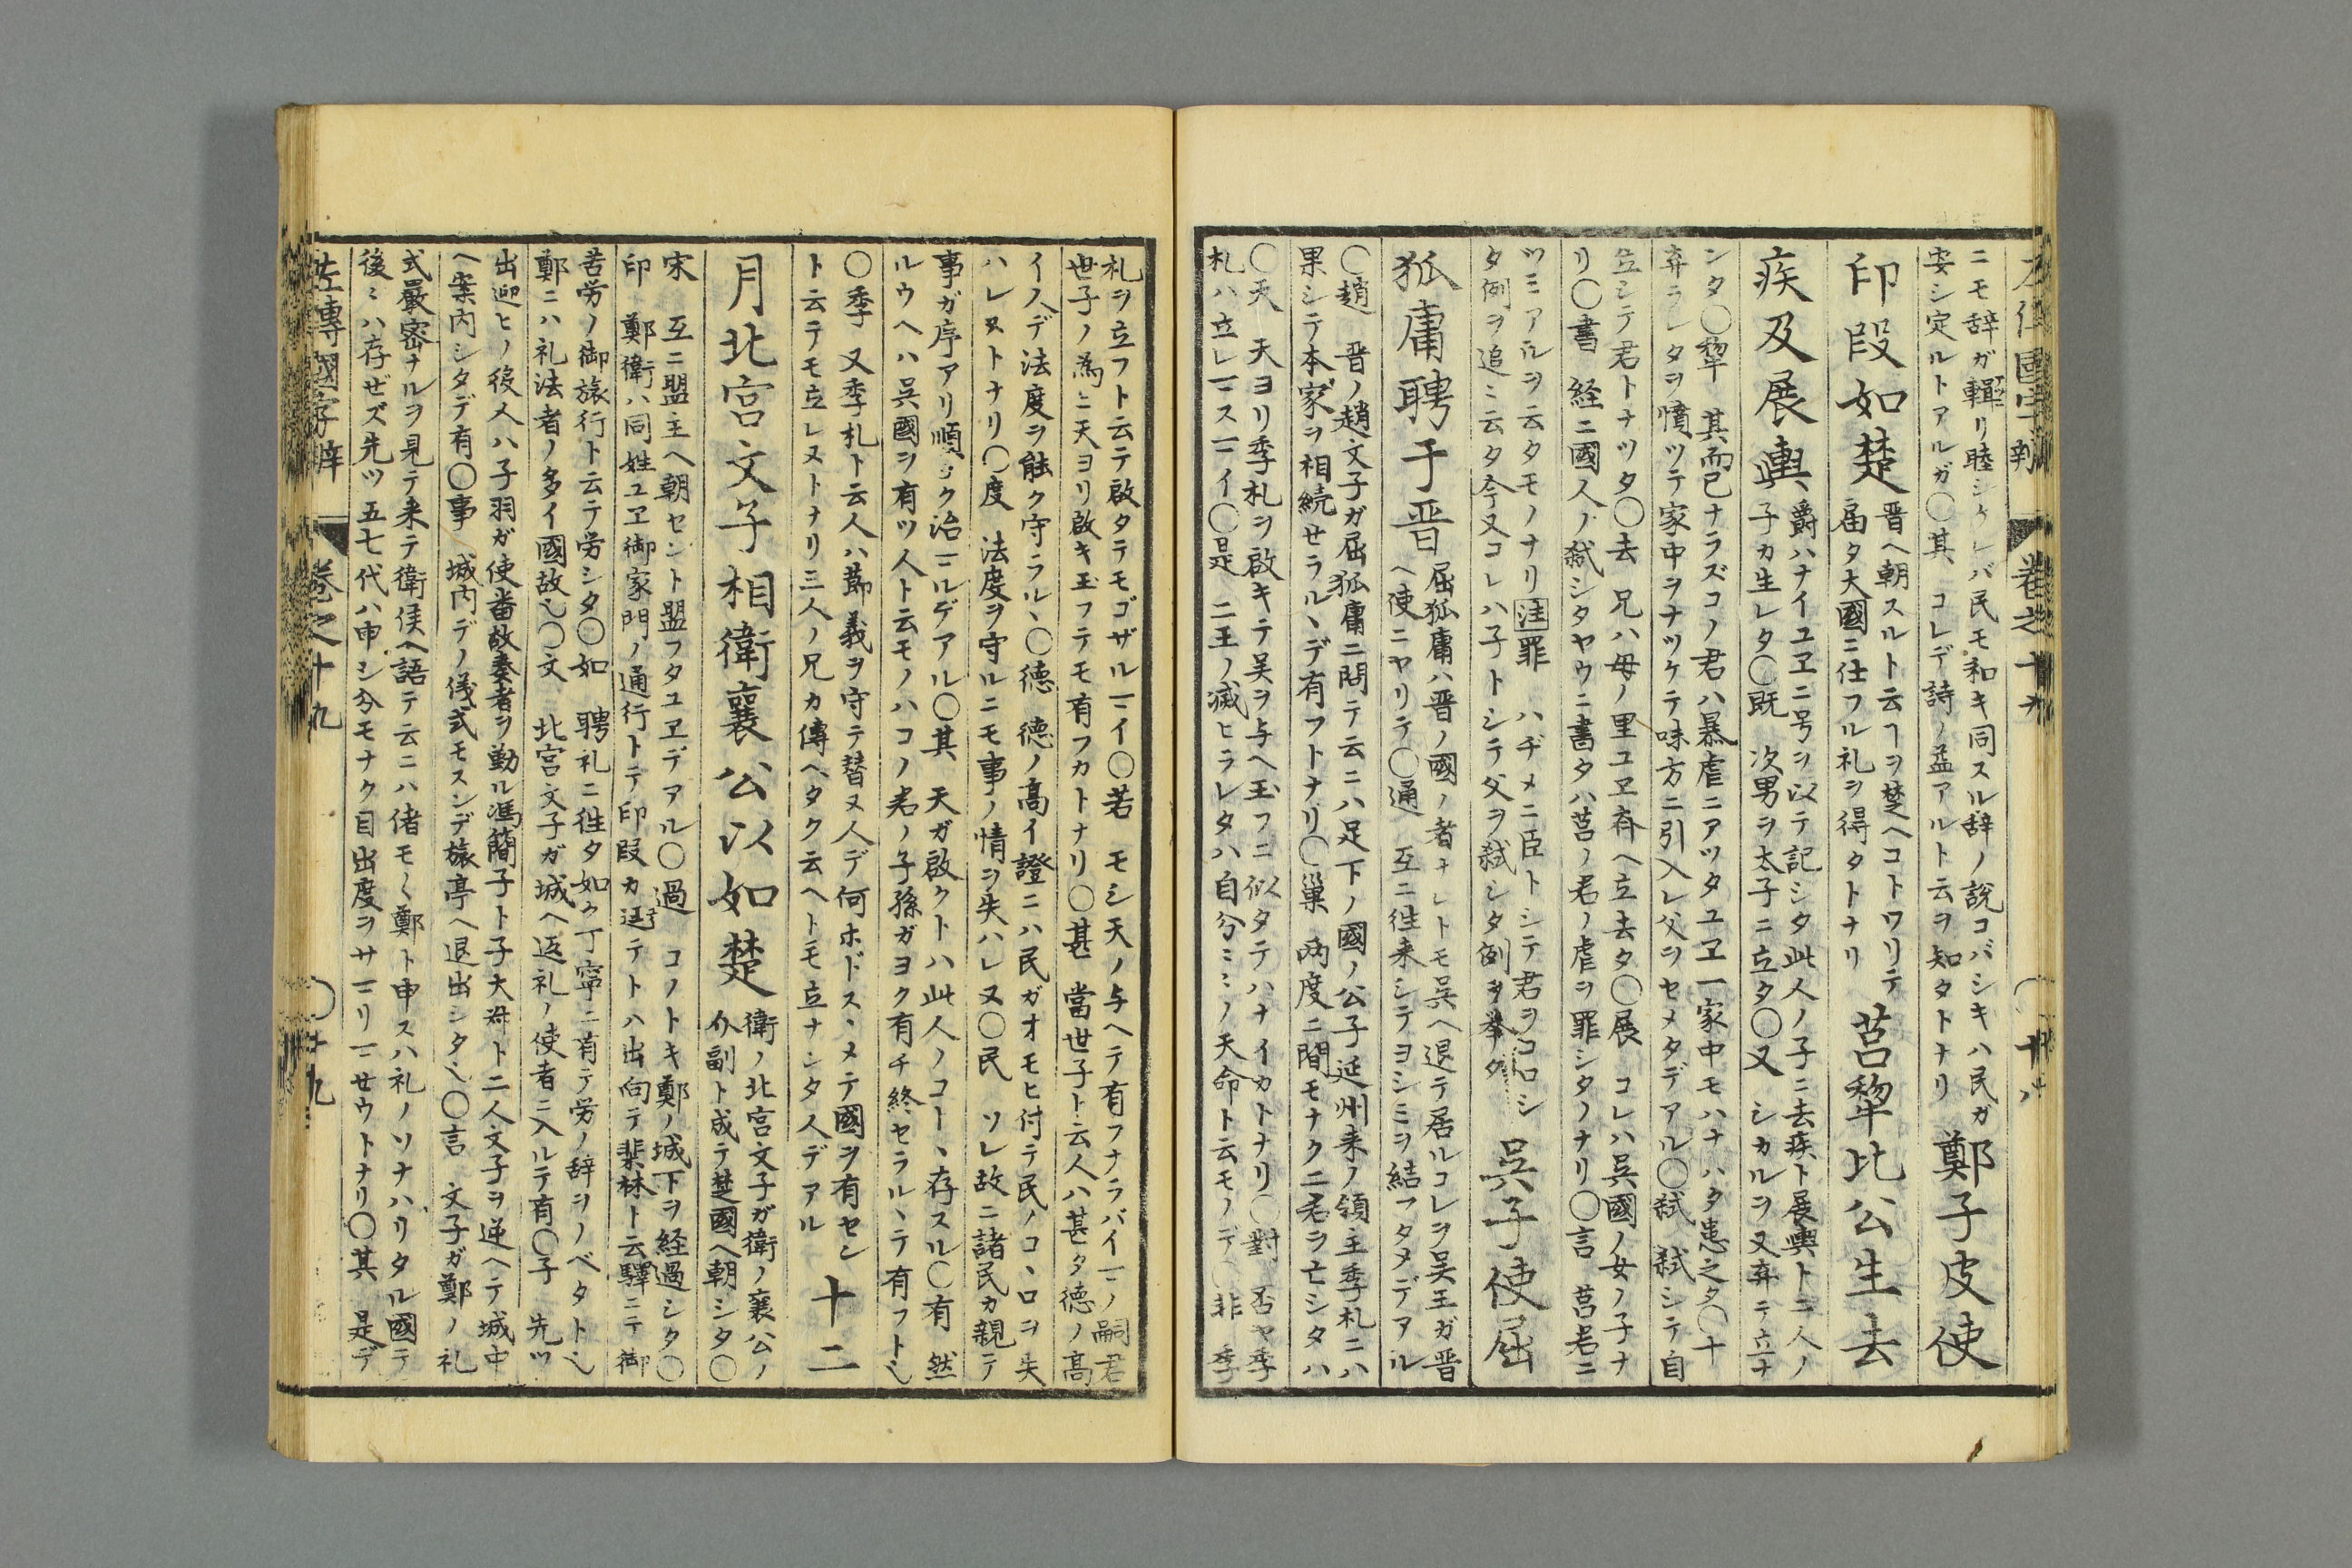 左傳國字辨 卷之十九 〇十八
ニモ辞ガ輯リ睦シケレバ民モ和キ同スル辞ノ説コバシキハ民ガ
安シ定ルトアルガ〇其 コレデ詩ノ益アルト云ヲ知タトナリ
鄭子皮使
印段如楚
晋ヘ朝スルト云ヿヲ楚ヘコトワリテ
届タ大國ニ仕フル礼ヲ得タトナリ
莒犂比公生去
疾及展輿
爵ハナイユヱニ号ヲ以テ記シタ此人ノ子ニ去疾ト展輿ト二人ノ
子カ生レタ〇既 次男ヲ太子ニ立タ〇又 シカルヲ又弃テ立ナ
ンタ〇犂 其而已ナラズコノ君ハ暴虐ニアツタユヱ一家中モハナハタ患之タ〇十
弃ラレタヲ憤ツテ家中ヲナツケテ味方ニ引入レ父ヲセメタデアル〇弑 弑シテ自
立シテ君トナツタ〇去 兄ハ母ノ里ユヱ斉ヘ立去タ〇展 コレハ呉國ノ女ノ子ナ
リ〇書 経ニ國人ノ弑シタヤウニ書タハ莒ノ君ノ虐ヲ罪シタノナリ〇言 莒君ニ
ツミアルヲ云タモノナリ注罪 ハヂメニ臣トシテ君ヲコロシ
タ例ヲ追ミ云タ今又コレハ子トシテ父ヲ弑シタ例ヲ挙タ
呉子使屈
狐庸聘于晋
屈狐庸ハ晋ノ國ノ者ナレトモ呉ヘ退テ居ルコレヲ呉王ガ晋
ヘ使ニヤリテ〇通 互ニ往来シテヨシミヲ結フタメデアル
〇趙 晋ノ趙文子ガ屈狐庸ニ問テ云ニハ足下ノ國ノ公子延州来ノ領主季札ニハ
果シテ本家ヲ相続セラルヽデ有フトナリ〇巣 两度ニ間モナク二君ヲ亡シタハ
〇天 天ヨリ季札ヲ啟キテ呉ヲ与ヘ玉フニ似タテハナイカトナリ〇對 否ヤ季
札ハ立レ𪜈スマイ〇是 二王ノ滅ヒラレタハ自分ミミノ天命ト云モノデ〇非 季
札ヲ立フト云テ啟タテモゴザルマイ〇若 モシ天ノ与ヘテ有フナラバイマノ嗣君
世子ノ為ニ天ヨリ啟キ玉フテモ有フカトナリ〇甚 當世子ト云人ハ甚タ徳ノ高
イ人デ法度ヲ能ク守ラルヽ〇徳 徳ノ高イ證ニハ民ガオモヒ付テ民ノコヽロヲ失
ハレヌトナリ〇度 法度ヲ守ルニモ事ノ情ヲ失ハレヌ〇民 ソレ故ニ諸民カ親テ
事ガ序アリ順ヨク治マルデアル〇其 天ガ啟クトハ此人ノコトヽ存スル〇有 然
ルウヘハ呉國ヲ有ツ人ト云モノハコノ君ノ子孫ガヨク有チ終セラルヽテ有フト也
〇季 又季札ト云人ハ節義ヲ守テ替ヌ人デ何ホドスヽメテ國ヲ有セシ
ト云テモ立レヌトナリ三人ノ兄カ傳ヘタク云ヘトモ立ナンタ人デアル
十二
月北宮文子相衛襄公以如楚
衛ノ北宮文子ガ衛ノ襄公ノ
介副ト成テ楚國ヘ朝シタ〇
宋 互ニ盟主ヘ朝セント盟フタユヱデアル〇過 コノトキ鄭ノ城下ヲ経過シタ〇
印 鄭衛ハ同姓ユヱ御家門ノ通行トテ印段カ迋テトハ出向テ棐林ト云驛ニテ御
苦労ノ御旅行ト云テ労シタ〇如 聘礼ニ往タ如ク丁寧ニ有テ労ノ辞ヲノベタト也
鄭ニハ礼法者ノ多イ國故也〇文 北宮文子ガ城ヘ返礼ノ使者ニ入ルテ有〇子 先ツ
出迎ヒノ役人ハ子羽ガ使番故奏者ヲ勤ル馮簡子ト子大叔ト二人文子ヲ逆ヘテ城中
ヘ案内シタデ有〇事 城内デノ儀式モスンデ旅亭ヘ退出シタ也〇言 文子ガ鄭ノ礼
式嚴密ナルヲ見テ来テ衛侯ヘ語テ云ニハ偖モ〱鄭ト申スハ礼ノソナハリタル國テ
後ミハ存ゼズ先ツ五七代ハ申シ分モナク目出度ヲサマリマセウトナリ〇其 是デ
左傳國字辨 卷之十九 〇十九